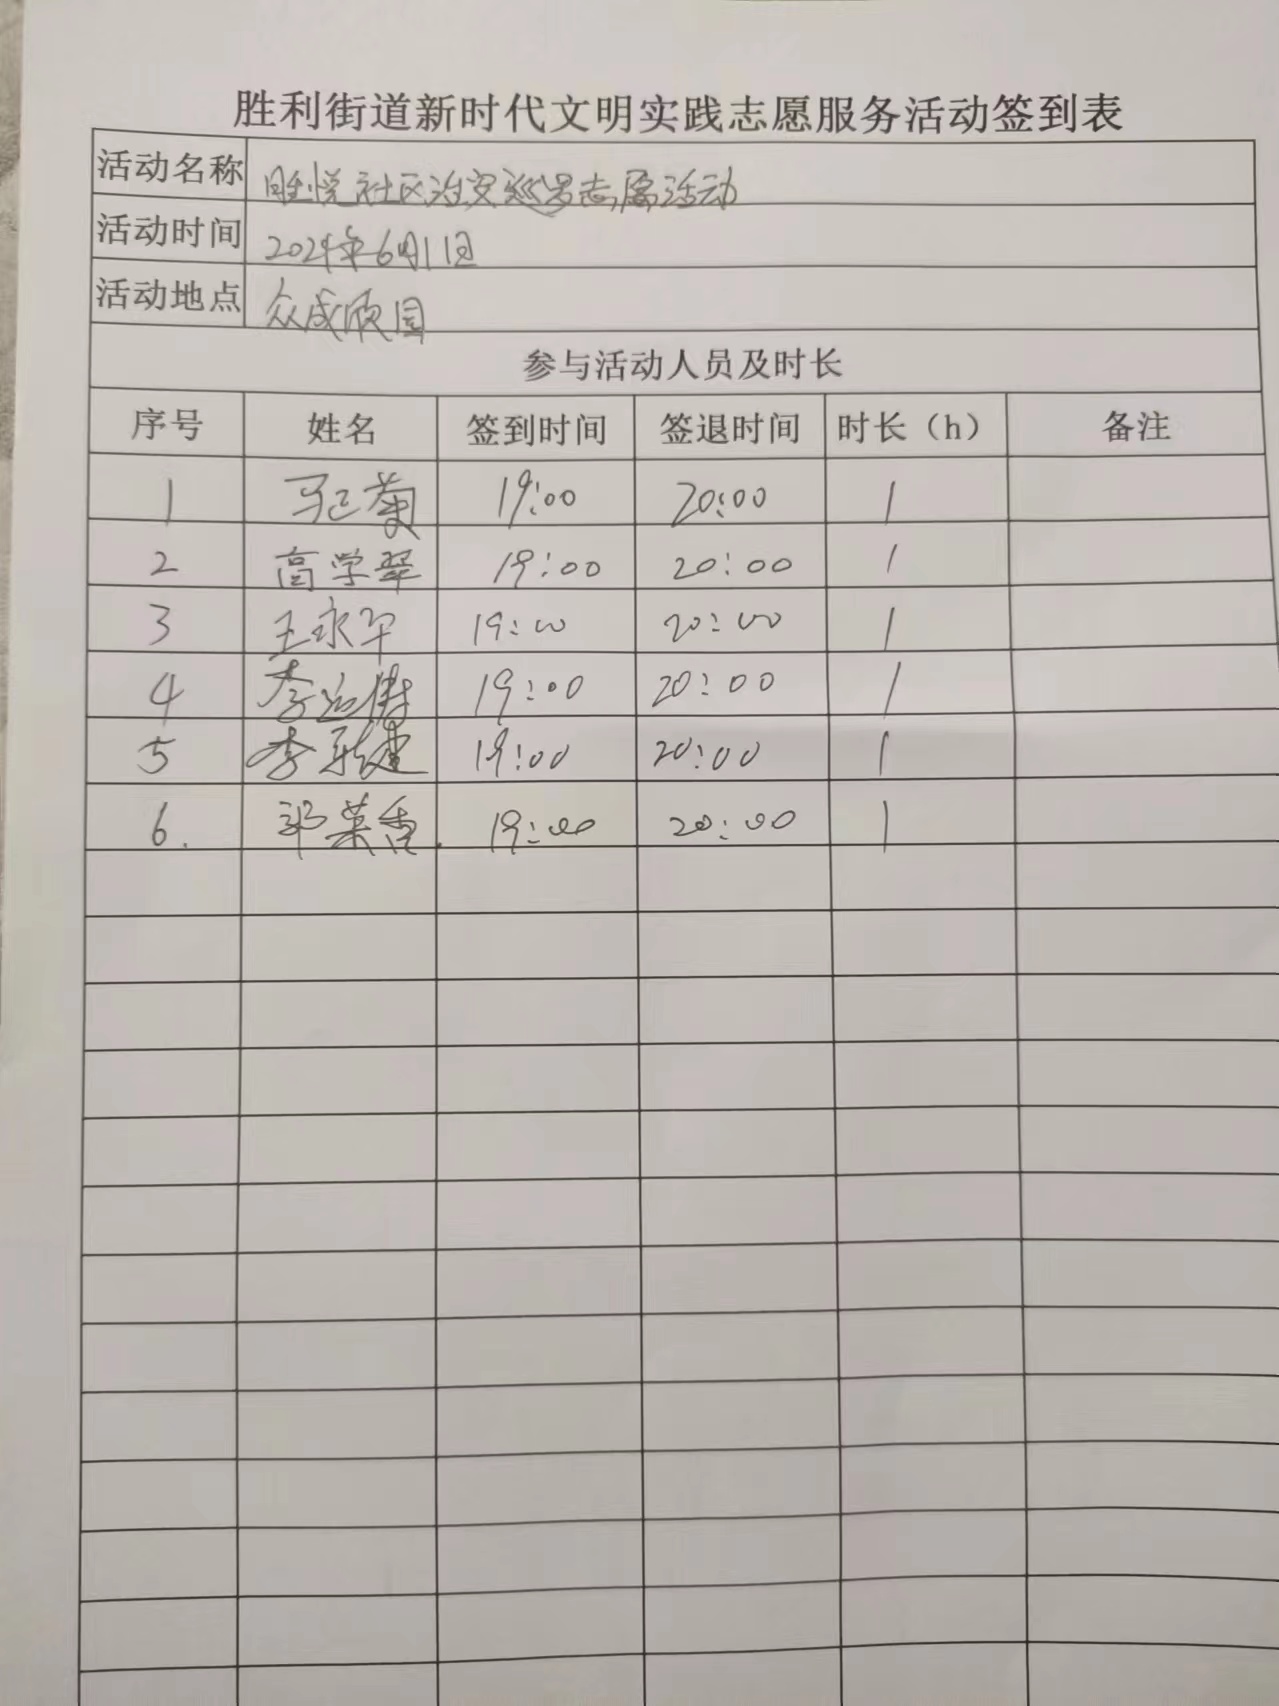 胜利街道新时代文明实践志愿服务活动签到表
活动名称 胜悦社区治安巡逻志愿活动
活动时间 2024年6月11日
活动地点 众成颐园
参与活动人员及时长
序号 姓名 签到时间 签退时间 时长（h） 备注
1 19:00 20:00 1
2 高学翠 19:00 20:00 1
3 王永军 19:00 20:00 1
4 李 19:00 20:00 1
5 李 建 19:00 20:00 1
6. 郭荣香 19:00 20:00 1